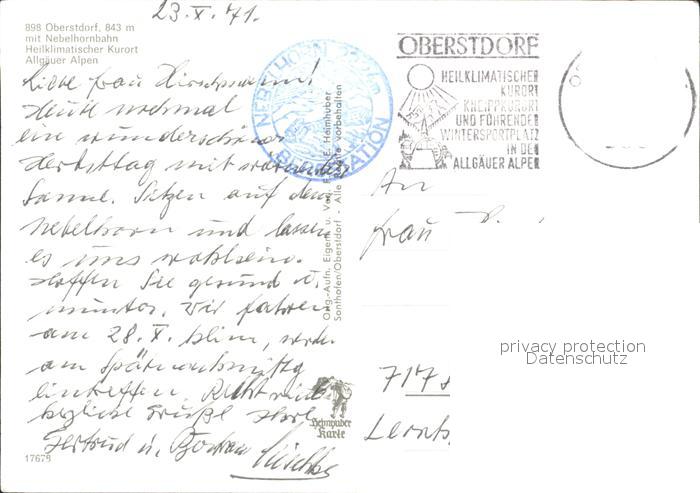 23.X.71.
898 Oberstdorf, 843 m
mit Nebelhornbahn
Heilklimatischer Kurort
Allgäuer Alpen
Liebe Frau
Heute nochmal
eine wunderschöner
Herbsttag mit
Sonne. Sitzen auf dem
Nebelhorn und lassen
es uns wohlsein.
Hoffen Sie gesund u.
munter. Wir fahren
am 28.X. heim,
am Spätnachmittag
eintreffen. Recht
herzliche Grüße
Gertrud u.
17678
NEBELHORN
BERGSTATION
Orig.-Aufn. Eigent. u. Verl. E. Heimhuber
Sonthofen/Oberstdorf - Alle Rechte vorbehalten
Heimhuber
Karte
OBERSTDORF
HEILKLIMATISCHER
KURORT
KNEIPPKURORT
UND FÜHRENDER
WINTERSPORTPLATZ
IN DEN
ALLGÄUER ALPEN
An
Frau
717
privacy protection
Datenschutz